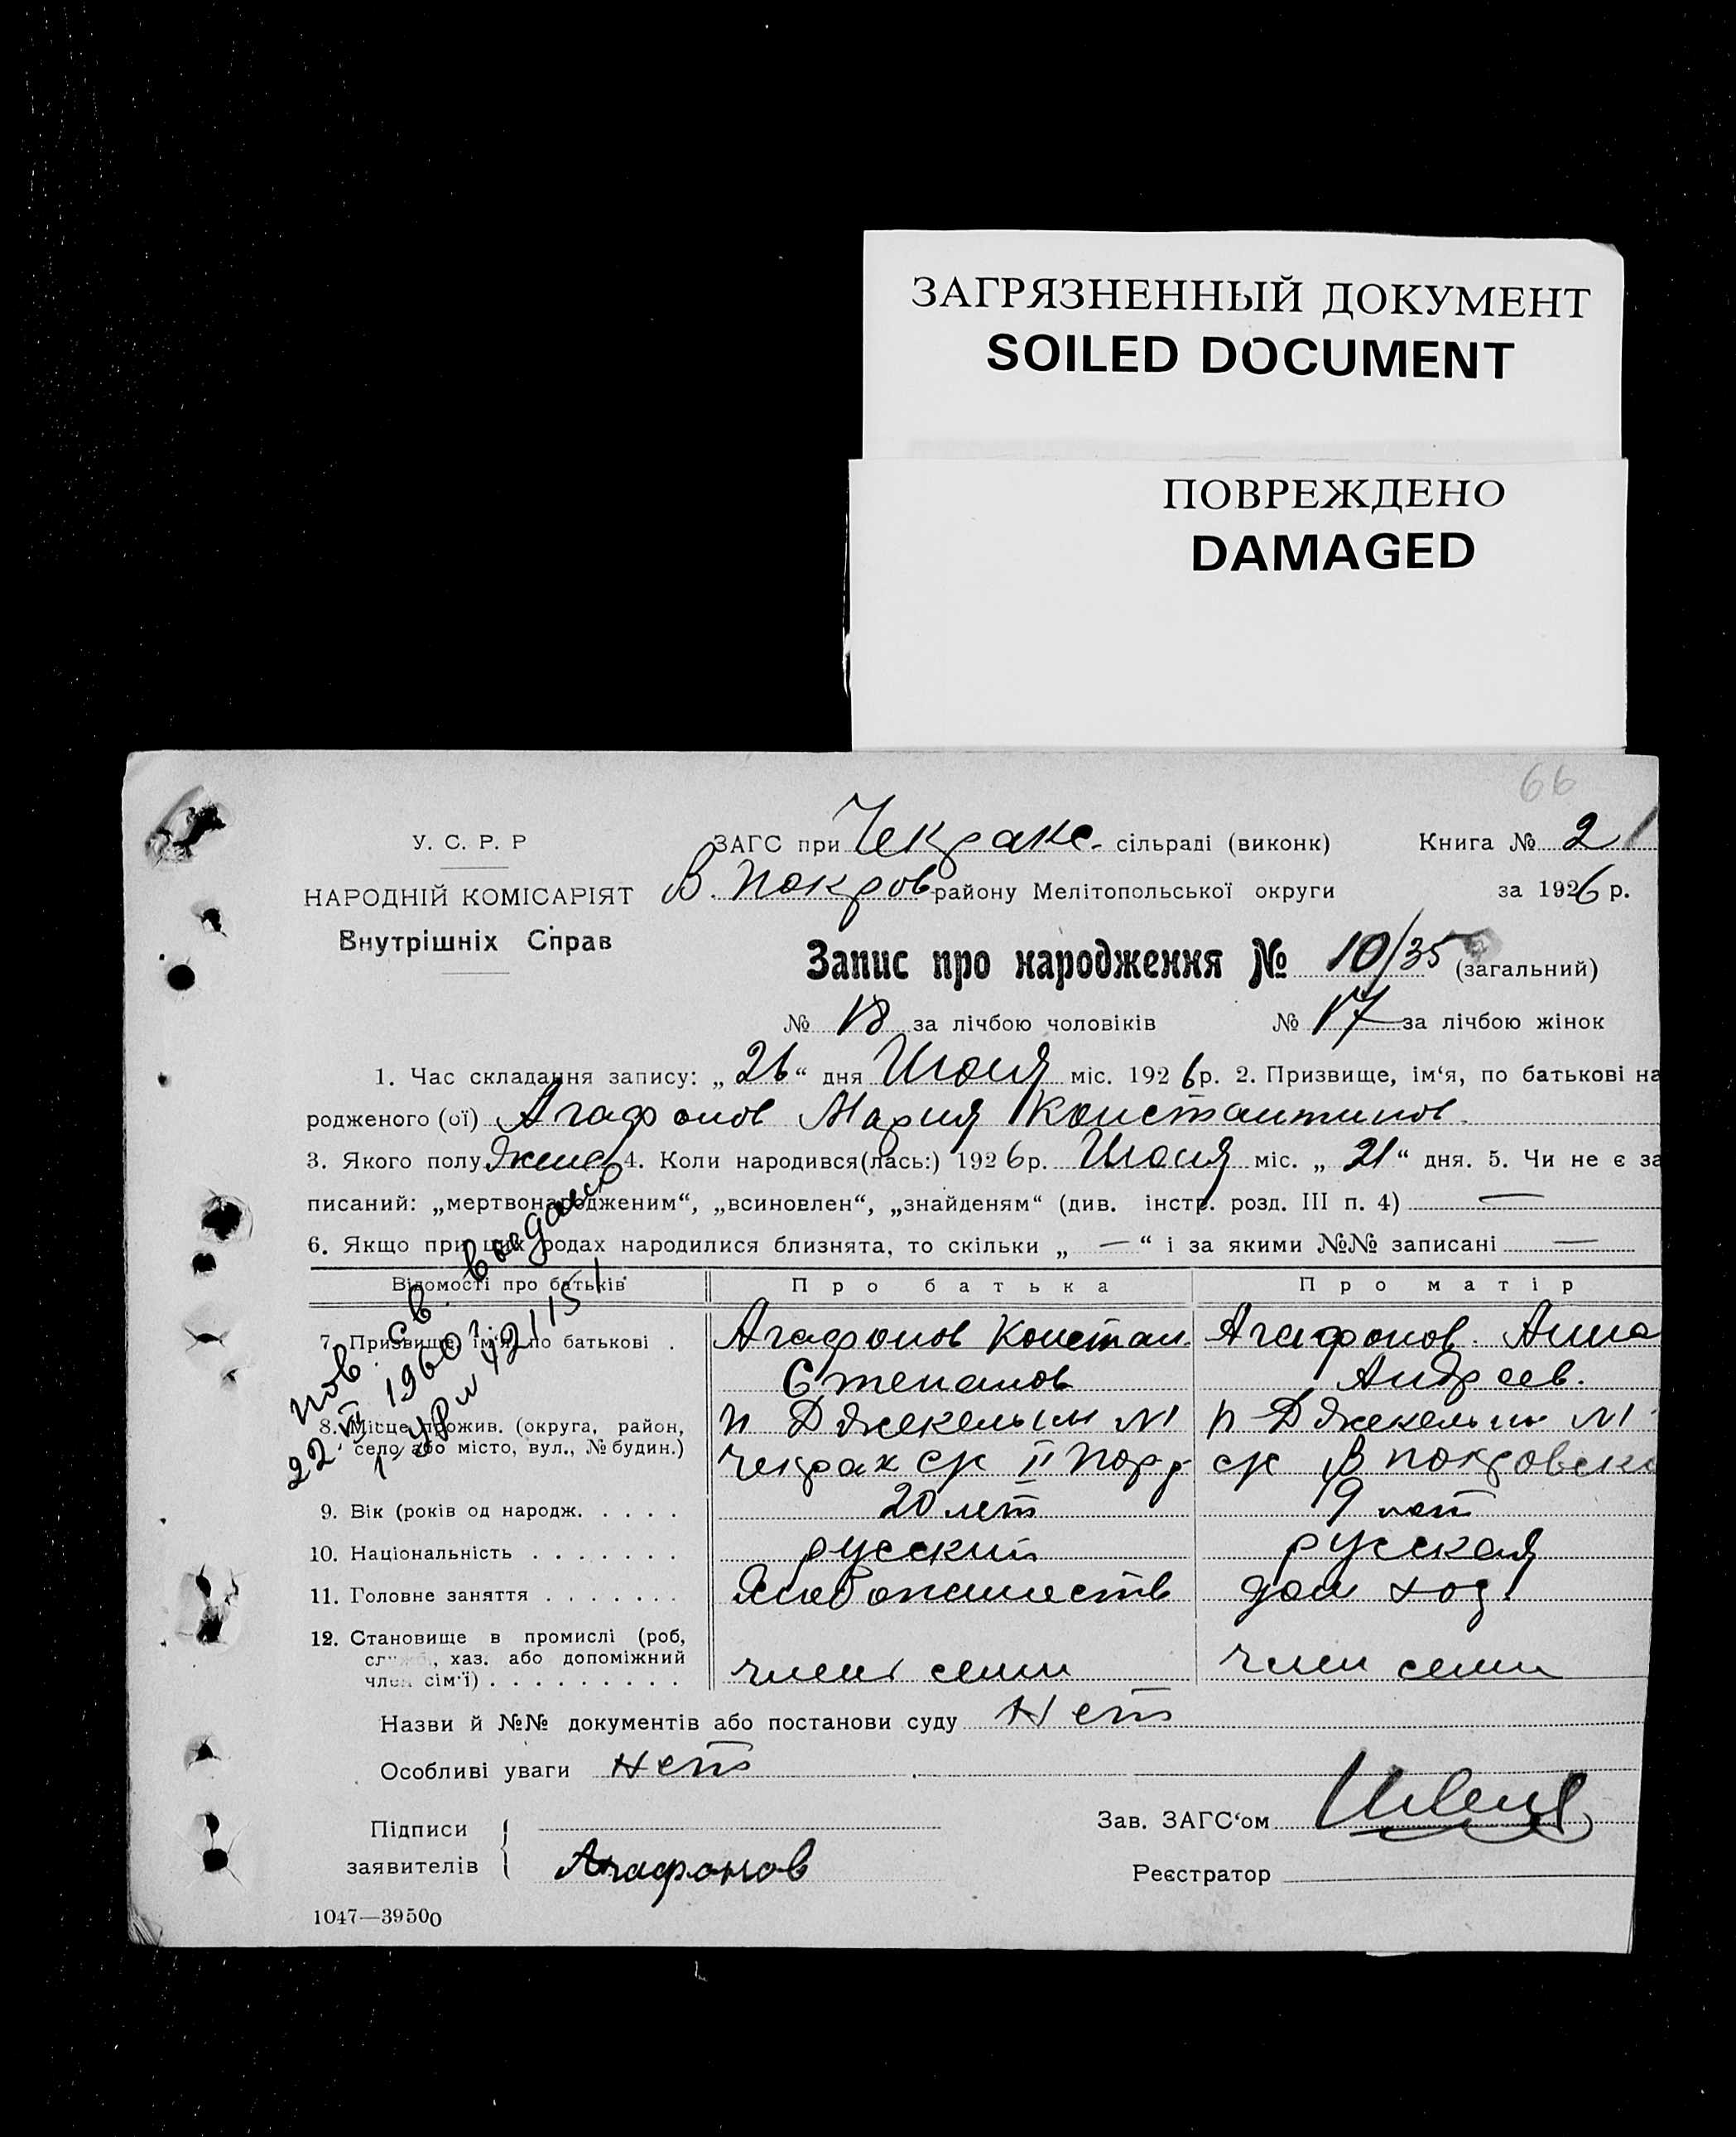 ЗАГРЯЗНЕННЫЙ ДОКУМЕНТ
SOILED DOCUMENT
ПОВРЕЖДЕНО
DAMAGED
66
У. С. Р. Р
НАРОДНІЙ КОМІСАРІЯТ
Внутрішніх Справ
ЗАГС при Чекракс. сільраді (виконк) Книга № 2
В. Покров району Мелітопольської округи за 1926 р.
Запис про народження № 10/35 (загальний)
№ 18 за лічбою чоловіків № 17 за лічбою жінок
1. Час складання запису: „26“ дня Июня міс. 1926 р. 2. Призвище, ім‘я, по батькові на
родженого (ої) Агафонов Мария Константинов.
3. Якого полу Жен 4. Коли народився(лась:) 1926 р. Июня міс. „21“ дня. 5. Чи не є за
писаний: „мертвонародженим“, „всиновлен“, „знайденям“ (див. інстр. розд. III п. 4) —
6. Якщо при цих родах народилися близнята, то скільки „ — “ і за якими №№ записані —
Відомості про батьків Про батька Про матір
7. Призвище, ім‘я, по батькові . Агафонов Констан. Агафонов. Анна
Степанов Андреев.
8. Місце прожив. (округа, район, п Джекельни №1 п Джекельни №1
село або місто, вул., № будин.) Чекрак ск ск В покровск
9. Вік (років од народж. . . . . 20 лет 19 лет
10. Національність . . . . . . . русский русская
11. Головне заняття . . . . . . . Хлебопашеств дом хоз.
12. Становище в промислі (роб,
служб., хаз. або допоміжний
член сім‘ї) . . . . . . . . . член семи член семи
Назви й №№ документів або постанови суду Нет
Особливі уваги Нет
Підписи
заявителів Агафонов
Зав. ЗАГС‘ом
Реєстратор
1047—39500
пов. св. выдано
22 1960 г.